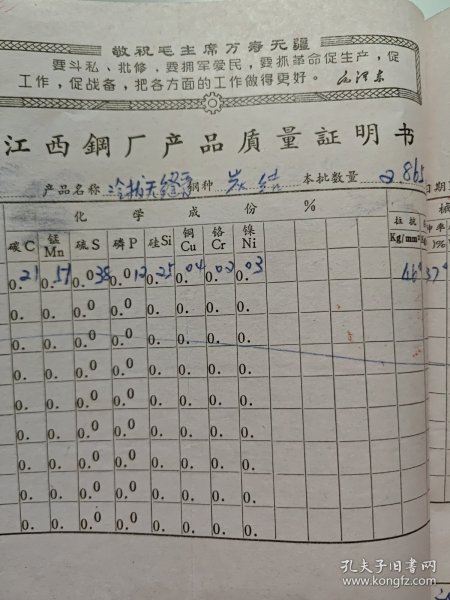 敬祝毛主席万寿无疆
要斗私、批修，要拥军爱民，要抓革命促生产，促
工作，促战备，把各方面的工作做得更好。 毛泽东
江西鋼厂产品质量証明书
产品名称 冷拔无缝管 钢种 炭结 本批数量 2.865 日期
化学成份 % 机
碳C 锰Mn 硫S 磷P 硅Si 铜Cu 铬Cr 镍Ni 拉抗 Kg/mm² 伸率 %
0.21 0.51 0.038 0.012 0.25 0.04 0.02 0.03 46 37
0. 0. 0.0 0.0 0. 0. 0. 0.
0. 0. 0.0 0.0 0. 0. 0. 0.
0. 0. 0.0 0.0 0. 0. 0. 0.
0. 0. 0.0 0.0 0. 0. 0. 0.
0. 0. 0.0 0.0 0. 0. 0. 0.
0. 0. 0.0 0.0 0. 0. 0. 0.
0. 0. 0.0 0.0 0. 0. 0. 0.
0. 0. 0.0 0.0 0. 0. 0. 0.
孔夫子旧书网
www.kongfz.com